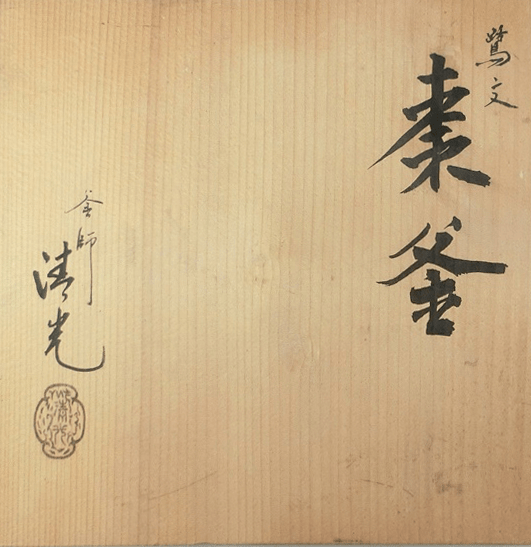 鷺文
棗釜
釜師
清光